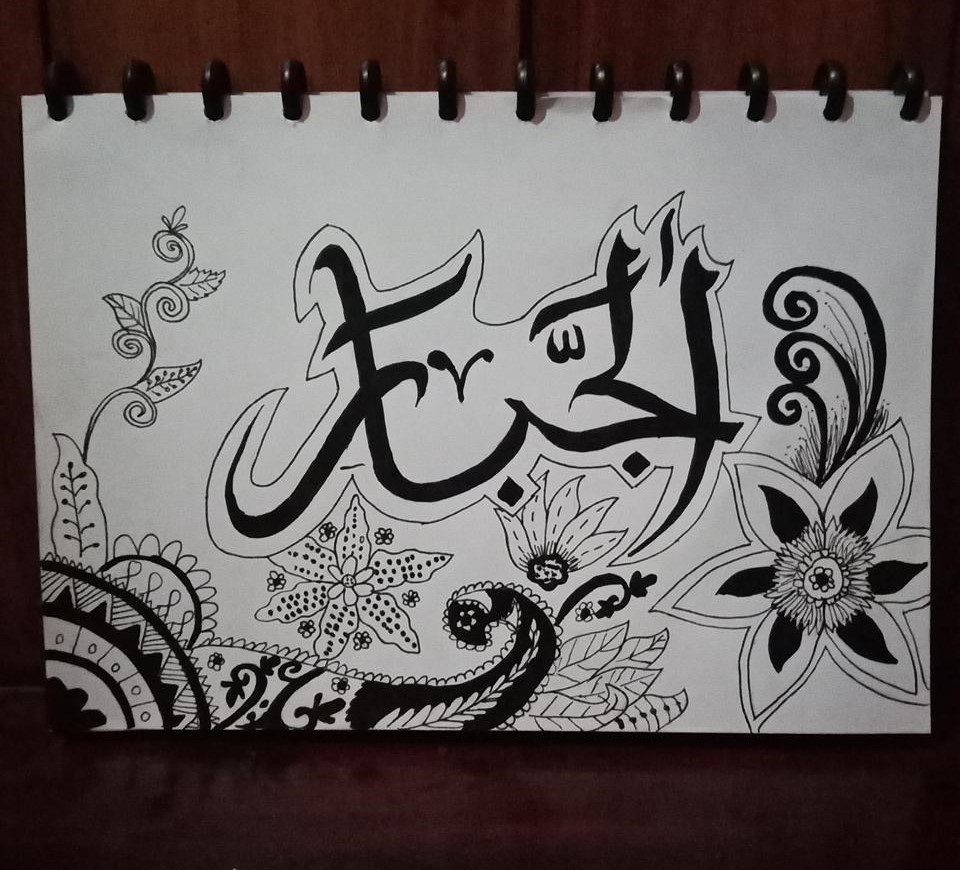 الجبّار